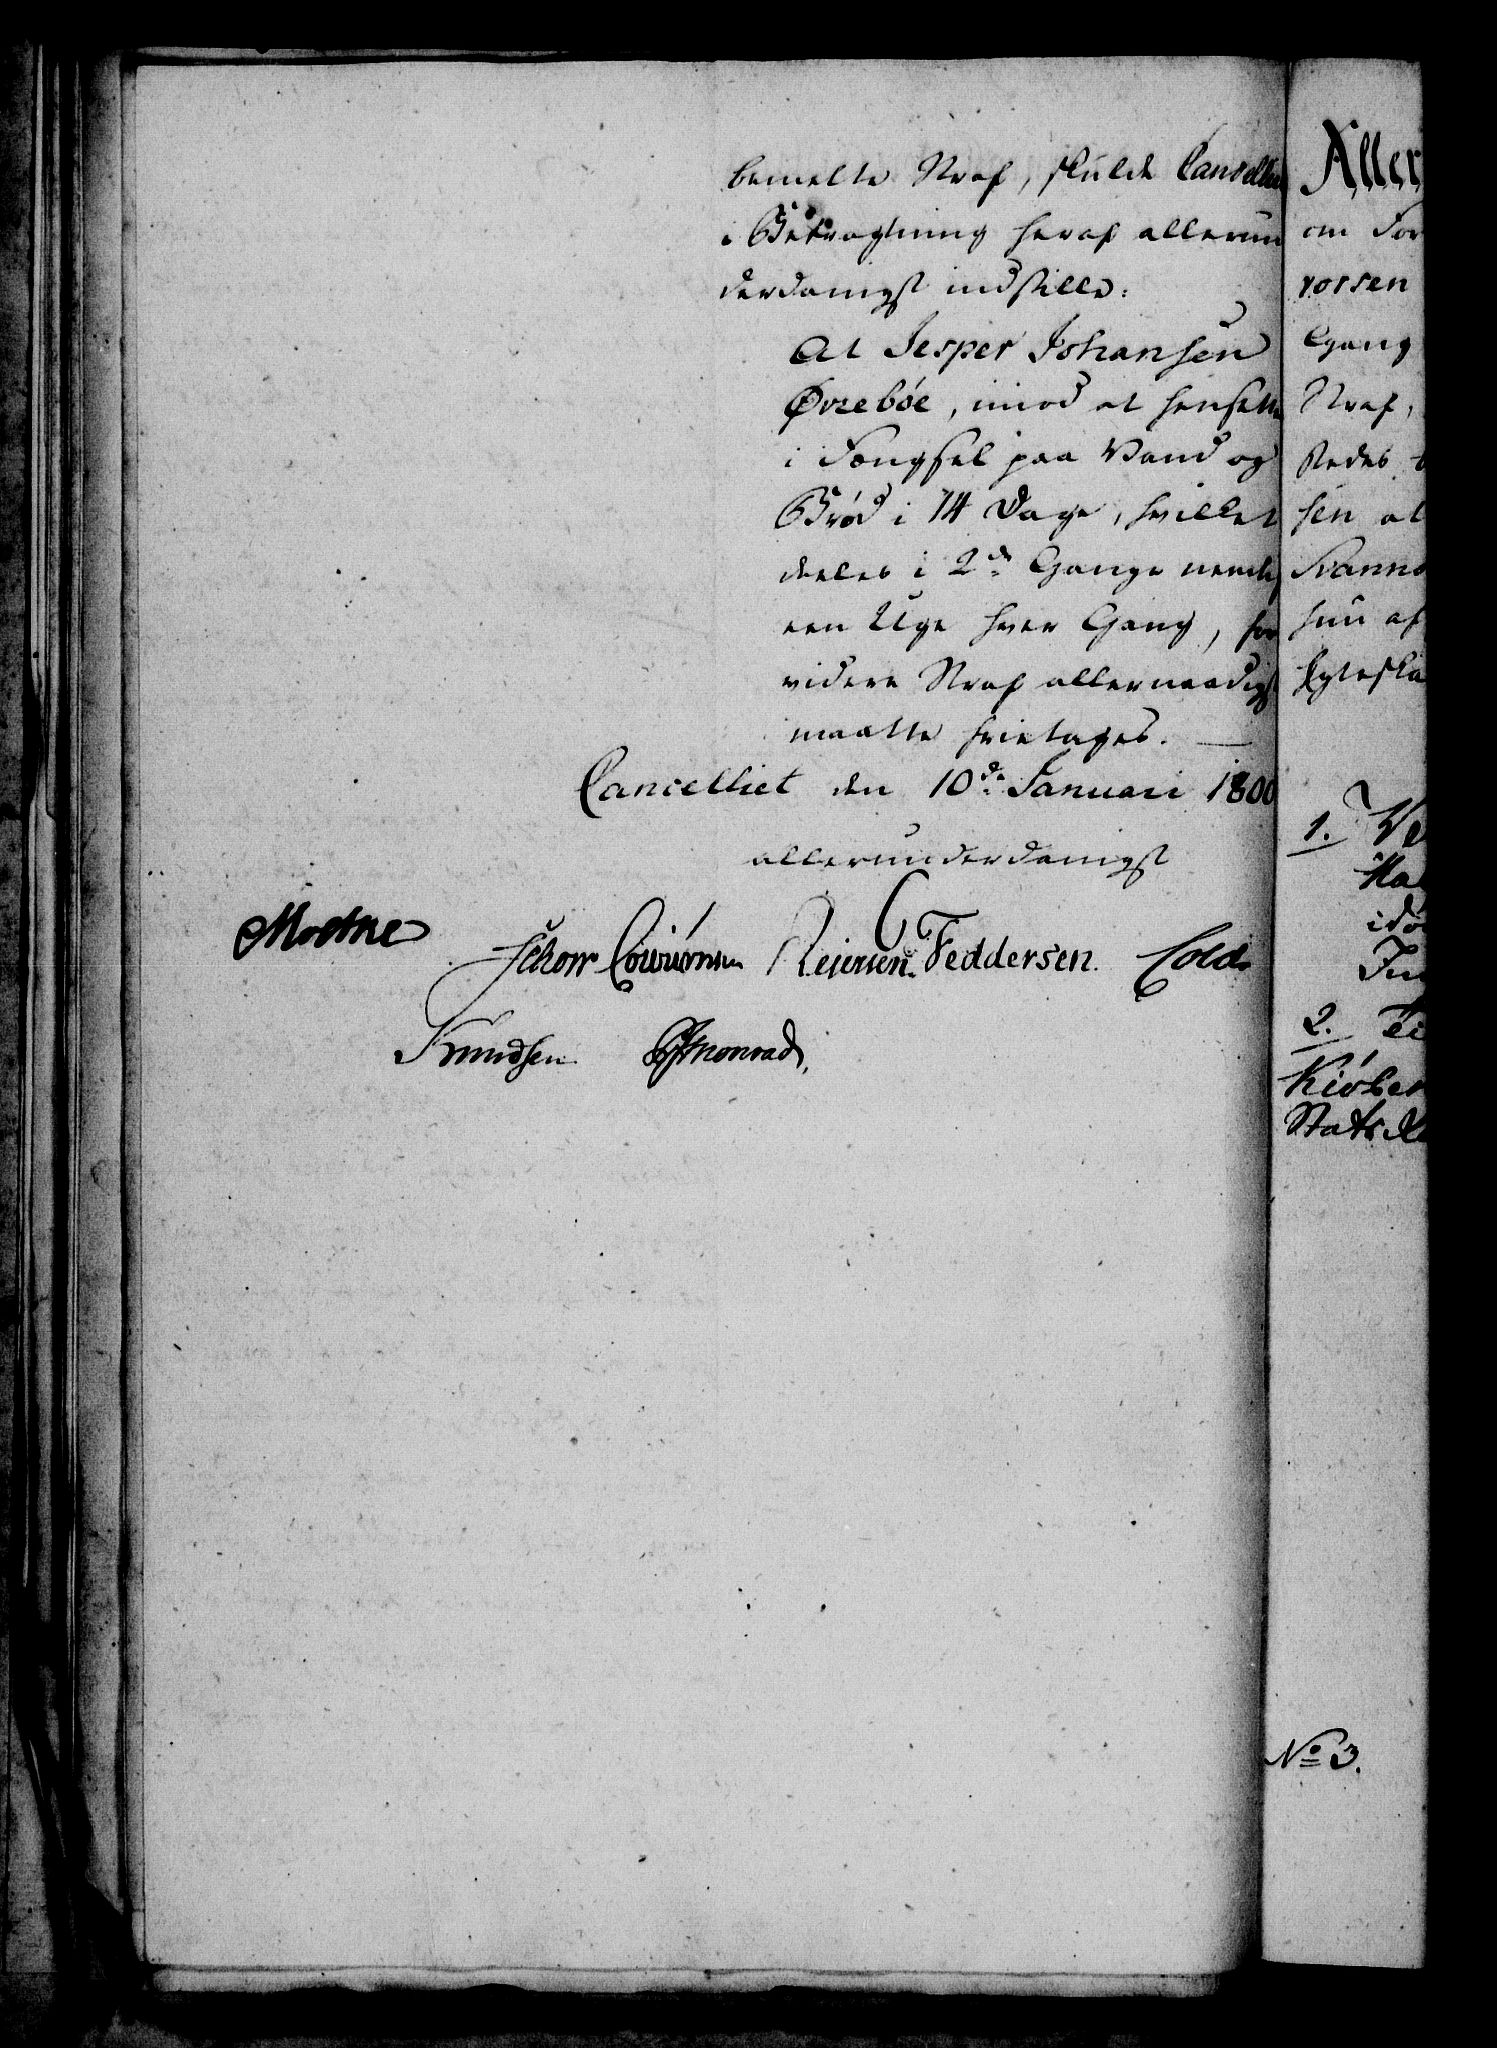 bemelte Straf, skulde Cancelliet
i Betragtning heraf allerun
derdanigst indstille:
At Jesper Johansen
Øvrebøe, imod at hensettes
i Fængsel paa Vand og
Brød i 14 Dage, hvilket
deeles i 2de Gange nemlig
een Uge hver Gang, for
videre Straf allernaadigst
maatte frietages.
Cancelliet den 10de Januari 1800
allerunderdanigst
Moltke
Schow Colbiørnsen Reiersen Feddersen. Cold
Knudsen Monrad,
Aller
om For
vorsen
Gang
Straf,
stedes
sen at
hun af
Egteska
1. Ve
2.
Kiøben
Stats
No 3.